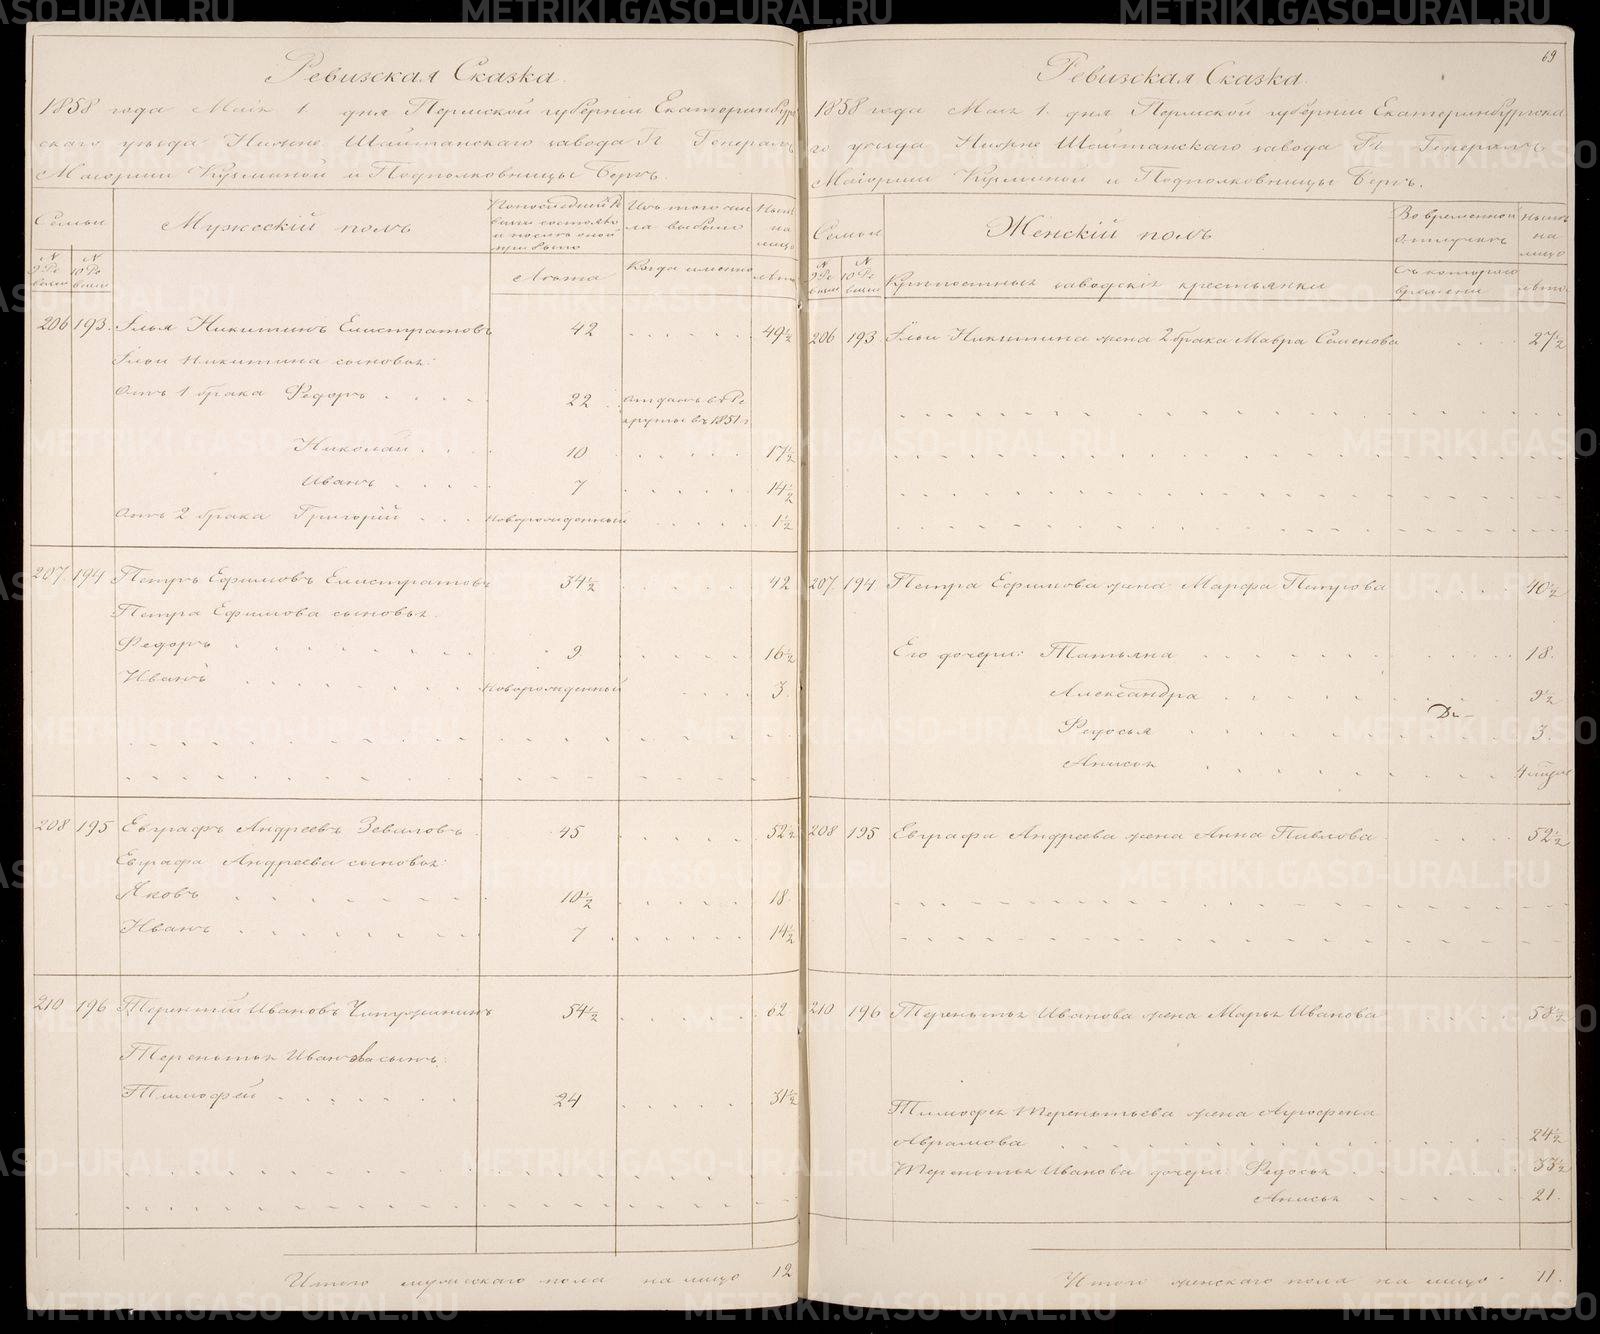 Ревизская Сказка
1858 года Маія 1. дня Пермской губерніи Екатеринбург
скаго уѣзда Нижне Шайтанскаго завода Гг Генералъ
Маіорши Кузьминой и Подполковницы Бергъ.
Семьи
Мужескій полъ
По последней Ре
визіи состояло
и послѣ оной
прибыло
Изъ того чис
ла выбыло
Нынѣ
на
лицо
N 9 Ре
визіи
N 10 Ре
визіи
Лѣта
Когда именно
лѣта
206 193. Илья Никитинъ Елистратовъ 42 49½
Ильи Никитина сыновья:
Отъ 1 брака Федоръ 22 отданъ въ Ре
круты въ 1851 г
Николай 10 17½
Иванъ 7 14½
Отъ 2 брака Григорій новорожденный 1½
207. 194 Петръ Ефимовъ Елистратовъ 34½ 42
Петра Ефимова сыновья.
Федоръ 9 16½
Иванъ новорожденный 3.
208 195 Евграфъ Андреевъ Зевиловъ 45 52½
Евграфа Андреева сыновья:
Яковъ 10½ 18.
Иванъ 7 14½
210 196 Терентій Ивановъ 54½ 62
Терентья Иванова сынъ:
Тимофей 24 31½
Итого мужскаго пола на лицо 12
69
Ревизская Сказка
1858 года Маія 1. дня Пермской губерніи Екатеринбургска
го уѣзда Нижне Шайтанскаго завода Гг Генералъ
Маіорши Кузьминой и Подполковницы Бергъ.
Семьи
Женскій полъ
Во временной
отлучкѣ
Нынѣ
на
лицо
N 9 Ре
визіи
N 10 Ре
визіи
Крѣпостныя заводскія крестьянки
Съ котораго
времени
лѣта
206 193 Ильи Никитина жена 2 брака Мавра Семенова 27½
207. 194. Петра Ефимова жена Марфа Петрова 40½
Его дочери: Татьяна 18.
Александра 9½
Федосья 3.
Анисья
208 195 Евграфа Андреева жена Анна Павлова 52½
210 196 Терентья Иванова жена Марья Иванова 58½
Тимофея Терентьева жена Агрофена
Аврамова 24½
Терентья Иванова дочери: Федосья 33½
Анисья 21.
Итого женскаго пола на лицо 11.
METRIKI.GASO-URAL.RU